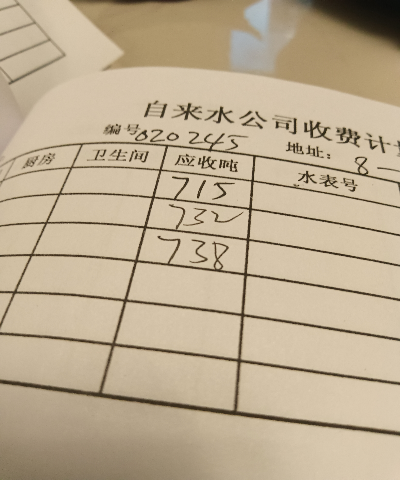 自来水公司收费计
编号020245 地址：8—
厨房 卫生间 应收吨 水表号
715
732
738